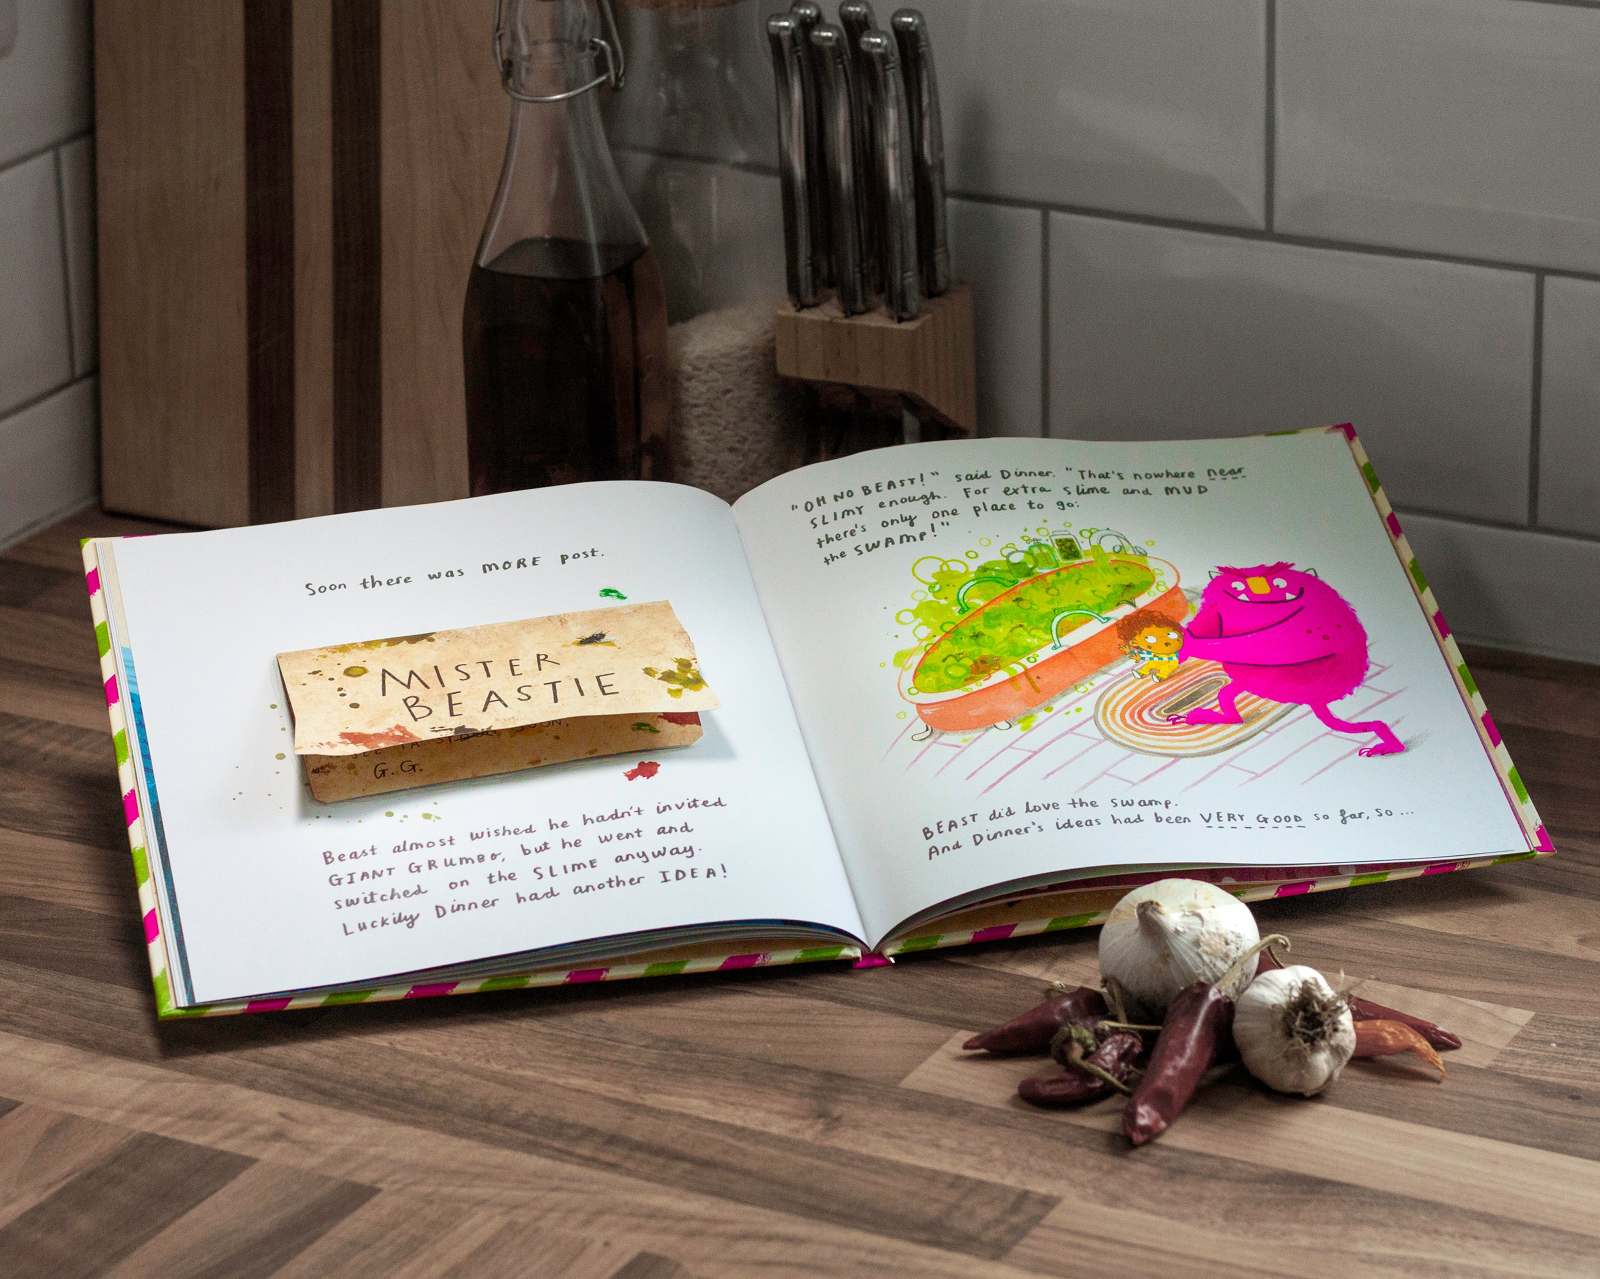 Soon there was MORE post.
MISTER
BEASTIE
SOON,
G.G.
Beast almost wished he hadn't invited
GIANT GRUMBO, but he went and
switched on the SLIME anyway.
Luckily Dinner had another IDEA!
"OH NO BEAST!" said Dinner. "That's nowhere near
SLIMY enough. For extra slime and MUD
there's only one place to go:
the SWAMP!"
BEAST did love the swamp.
And Dinner's ideas had been VERY GOOD so far, so ...